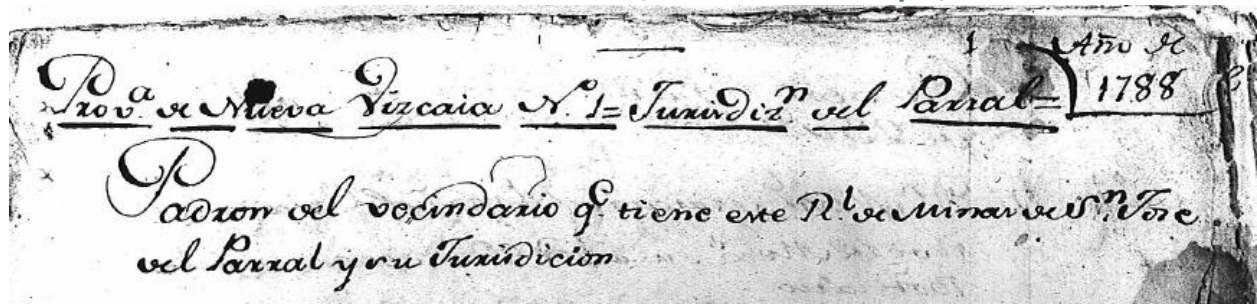 1 Año de
Prov.ª de Nueva Vizcaia N.º 1= Jurisdiz.n del Parral= 1788
Padron del vecindario q.e tiene este R.l de Minas de S.n Jose
del Parral y su Jurisdicion